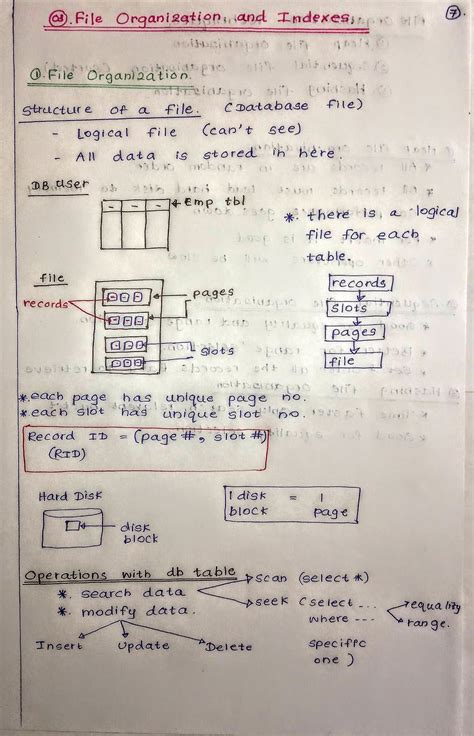 03. File Organization and Indexes.
7.
① File Organization.
Structure of a file. (Database file)
- Logical file (can't see)
- All data is stored in here.
DB user
Emp tbl
*. there is a logical
file for each
table.
file
records
pages
slots
records
slots
pages
file
*. each page has unique page no.
*. each slot has unique slot no.
Record ID = (page #, slot #)
(RID)
Hard Disk
disk
block
1 disk = 1
block page
Operations with db table
*. search data
*. modify data.
scan (select *)
seek (select ...
where ---
specific
one )
equality
range.
Insert Update Delete